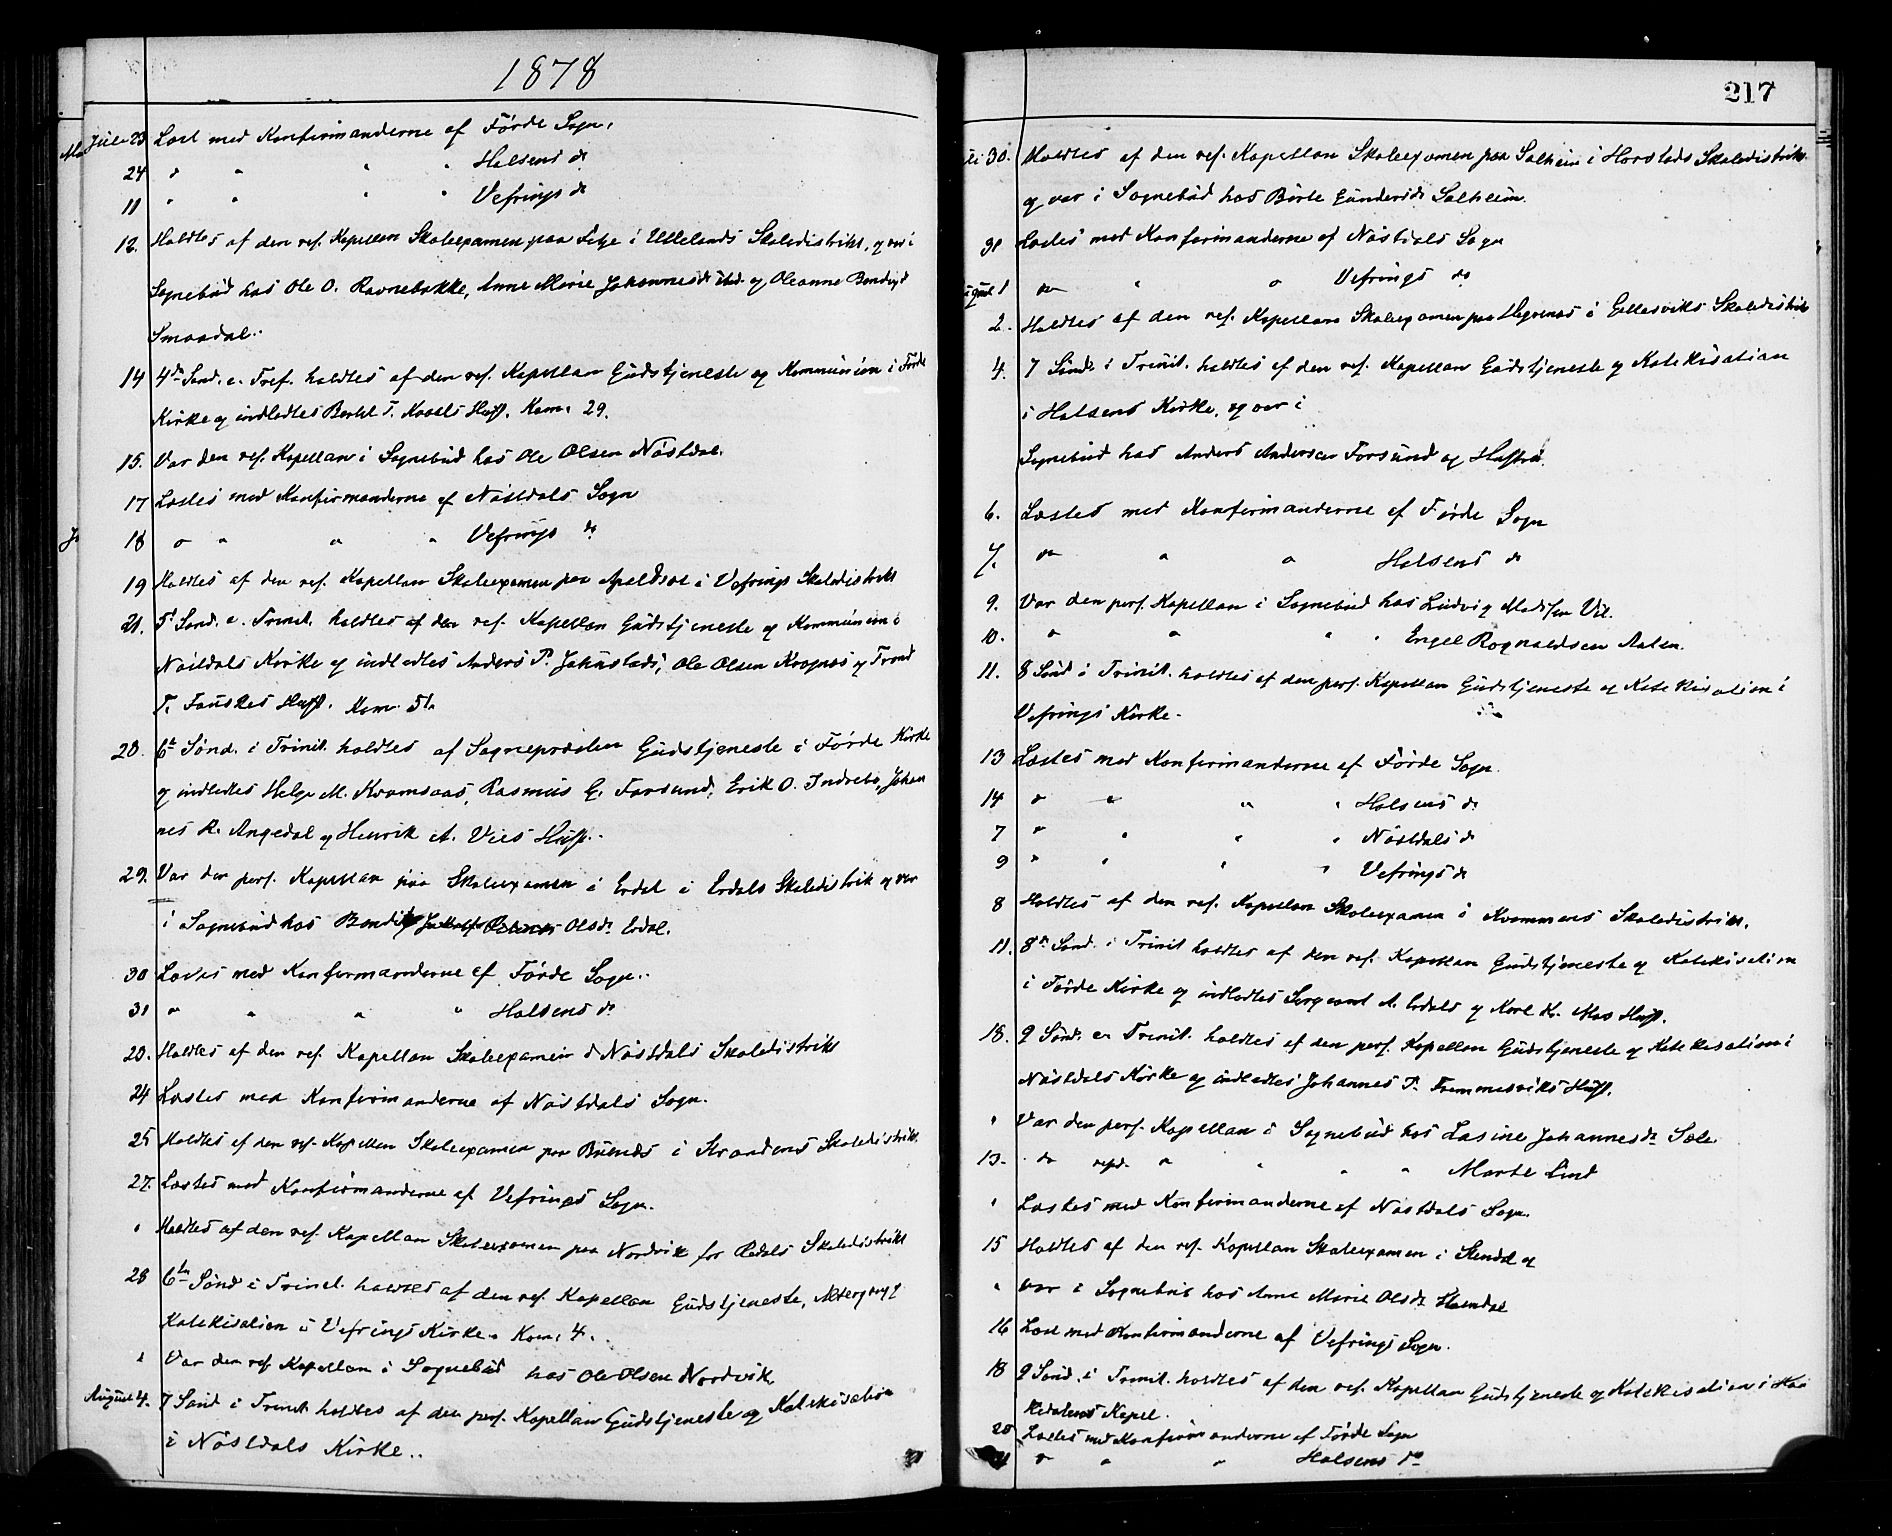 1878
Juli 23 Læst med Konfirmanderne af Förde Sogn.
24 " " " " Holsens do
11 " " " " Vefrings do
12. Holdtes af den res. Kapellan Skoleexamen paa i Ullelands Skoledistrikt, og var i
Sognebud hos Ole O. Ravnebakke, Anne Marie Johannesdr og Oleanne Bendixd
Smaadal..
14 4de Sønd. e. Tref. holdtes af den res. Kapellan Gudstjeneste og Kommunion i Förde
Kirke og indledtes Bertel T. Hust. Kom. 29.
15. Var den res. Kapellan i Sognebud hos Ole Olsen Nöstdal.
17 Læstes med Konfirmanderne af Nöstdals Sogn
18 " " " " Vefrings do
19 Holdtes af den res. Kapellan Skoleexamen paa i Vefrings Skoledistrikt
21. 5 Sønd. e. Trinit. holdtes af den res. Kapellan Gudstjeneste og Kommunion i
Nöstdals Kirke og indledtes Anders P. Jonstads, Ole Olsen og Trond
T. Fauskes Hust. Kom. 51.
28. 6te Sønd. i Trinit. holdtes af Sognepræsten Gudstjeneste i Förde Kirke
og indledtes Helge M. Kvamsaas, Rasmus E. Farsund, Erik O. Indrebø, Johan
nes R. Angedal og Henrik A. Vies Hust..
29. Var den pers. Kapellan paa Skoleexamen i Erdal i Erdals Skoledistrik og var
i Sognebud hos Olsdr Erdal.
30 Læstes med Konfirmanderne af Förde Sogn..
31 " " " " Holsens do
20. Holdtes af den res. Kapellan Skoleexamen i Nöstdals Skoledistrikt
24 Læstes med Konfirmanderne af Nöstdals Sogn.
25 Holdtes af den res. Kapellan Skoleexamen paa i Skoledistrikt.
27. Læstes med Konfirmanderne af Vefrings Sogn.
" Holdtes af den res. Kapellan Skoleexamen paa Nordvik for Redals Skoledistrikt
28 6te Sönd i Trinit. holdtes af den res. Kapellan Gudstjeneste, Altergang &
Katekisation i Vefrings Kirke. Kom. 4.
" Var den res. Kapellan i Sognebud hos Ole Olsen Nordvik
August 4. 7 Sønd i Trinit holdtes af den pers. Kapellan Gudstjeneste og Katekisation
i Nöstdals Kirke..
217
30. Holdtes af den res. Kapellan Skoleexamen paa Solheim i Horstads Skoledistrikt.
og var i Sognebud hos Börte Gundersdr Solheim.
31 Læstes med Konfirmanderne af Nöstdals Sogn
1 do " " Vefrings do
2. Holdtes af den res. Kapellan Skoleexamen paa i Skoledistrikt
4. 7 Sönd. i Trinit. holdtes af den res. Kapellan Gudstjeneste og Katekisation
i Holsens Kirke, og var i
Sognebud hos Anders Andersen Farsund og Hustru.
6. Læstes med Konfirmanderne af Förde Sogn
7. do " " Holsens do
9. Var den pers. Kapellan i Sognebud hos Ludvig Madsen Vie.
10. " " " " Engel Rognaldsen Aasen.
11. 8 Sönd i Trinit. holdtes af den pers. Kapellan Gudstjeneste og Katekisation i
Vefrings Kirke.
13 Læstes med Konfirmanderne af Förde Sogn.
14 " " " " Holsens do
7 " " " " Nöstdals do
9 " " " " Vefrings do
8 Holdtes af den res. Kapellan Skoleexamen i Kvammens Skoledistrikt.
11. 8de Sönd. i Trinit holdtes af den res. Kapellan Gudstjeneste og Katekisation
i Förde Kirke og indledtes Sergeant A. Erdals og Karl K. Mos Hust.
18. 9 Sönd. e. Trinit. holdtes af den pers. Kapellan Gudstjeneste og Katekisation i
Nöstdals Kirke og indledtes Johannes P. Fremmesviks Hust.
" Var den pers. Kapellan i Sognebud hos Lasine Johannesdr Sole.
13. do resd. " " " " Marte Lind
" Læstes med Konfirmanderne af Nöstdals Sogn.
15 Holdtes af den res. Kapellan Skoleexamen i og
" var i Sognebud hos Anne Marie Olsdr
16 Læst med Konfirmanderne af Vefrings Sogn.
18 9 Sönd. i Trinit. holdtes af den res. Kapellan Gudstjeneste og Katekisation i Hau
kedalens Kapel.
20 Læstes med Konfirmanderne af Förde Sogn
" " " Holsens do